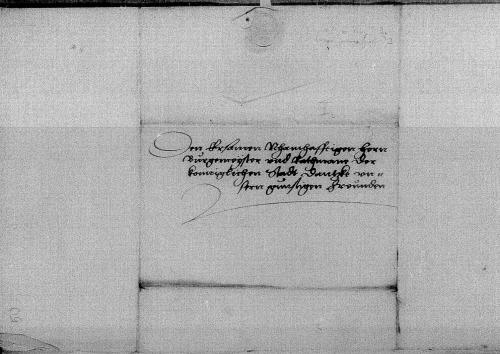 Den Ersamen Nhamhafftigen Hern
Burgemeyster vnd Rathmane der
koniglichen Stadt Dantzke vn-
sern gunstigen Freunden